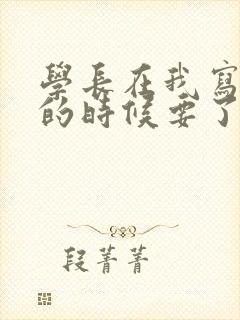 學長在我寫
的時候要了
段菁菁